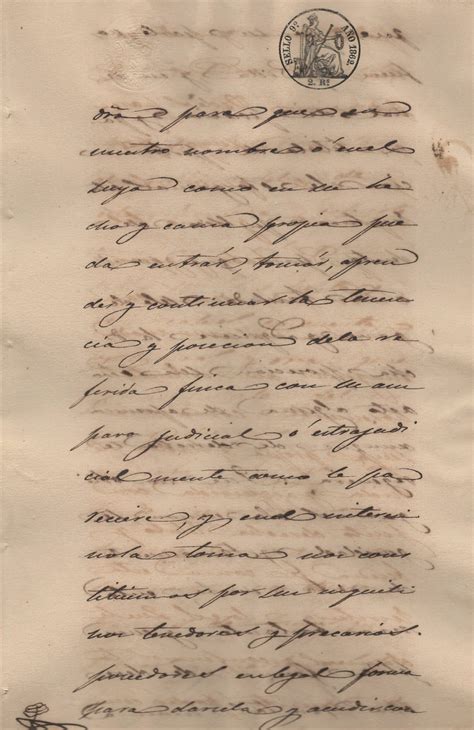 SELLO 9º AÑO 1862.
2. Rˢ
dra para que en
nuestro nombre ó en el
suyo como en su he
cho y causa propia pue
da entrar, tomar, apren
der y continuar la tenen
cia y posecion de la re
ferida finca con su am
paro judicial ó estrajudi
cialmente como le pa
reciere, y en el interin
no la toma nos cons
tituimos por sus inquili
nos tenedores y precarios
poseedores en legal forma
para darsela y acudir con